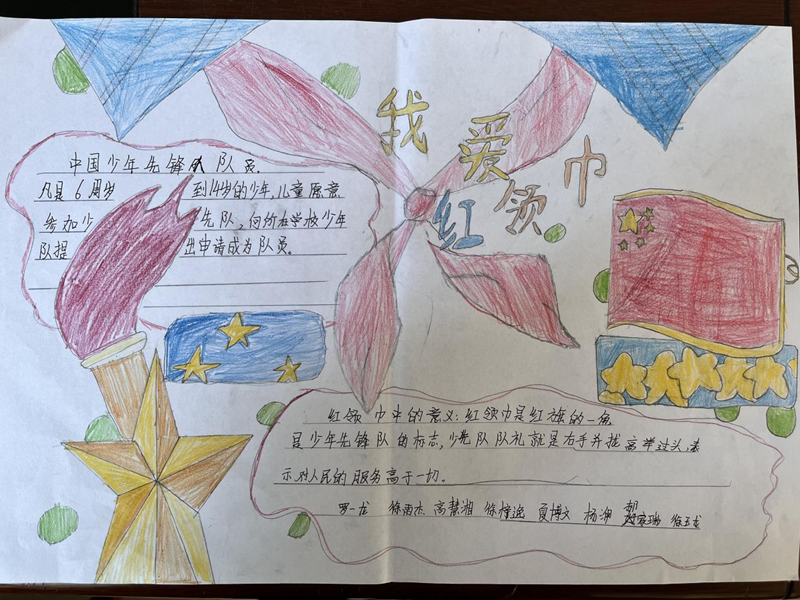 我爱
红领巾
中国少年先锋队队员.
凡是6周岁到14岁的少年,儿童愿意
参加少先队,向所在学校少年
队提出申请成为队员。
红领巾中的意义:红领巾是红旗的一角
是少年先锋队的标志,少先队队礼就是右手并拢高举过头,表
示对人民的服务高于一切。
罗一龙 徐雨杰 高慧湘 徐憧逸 夏博文 杨